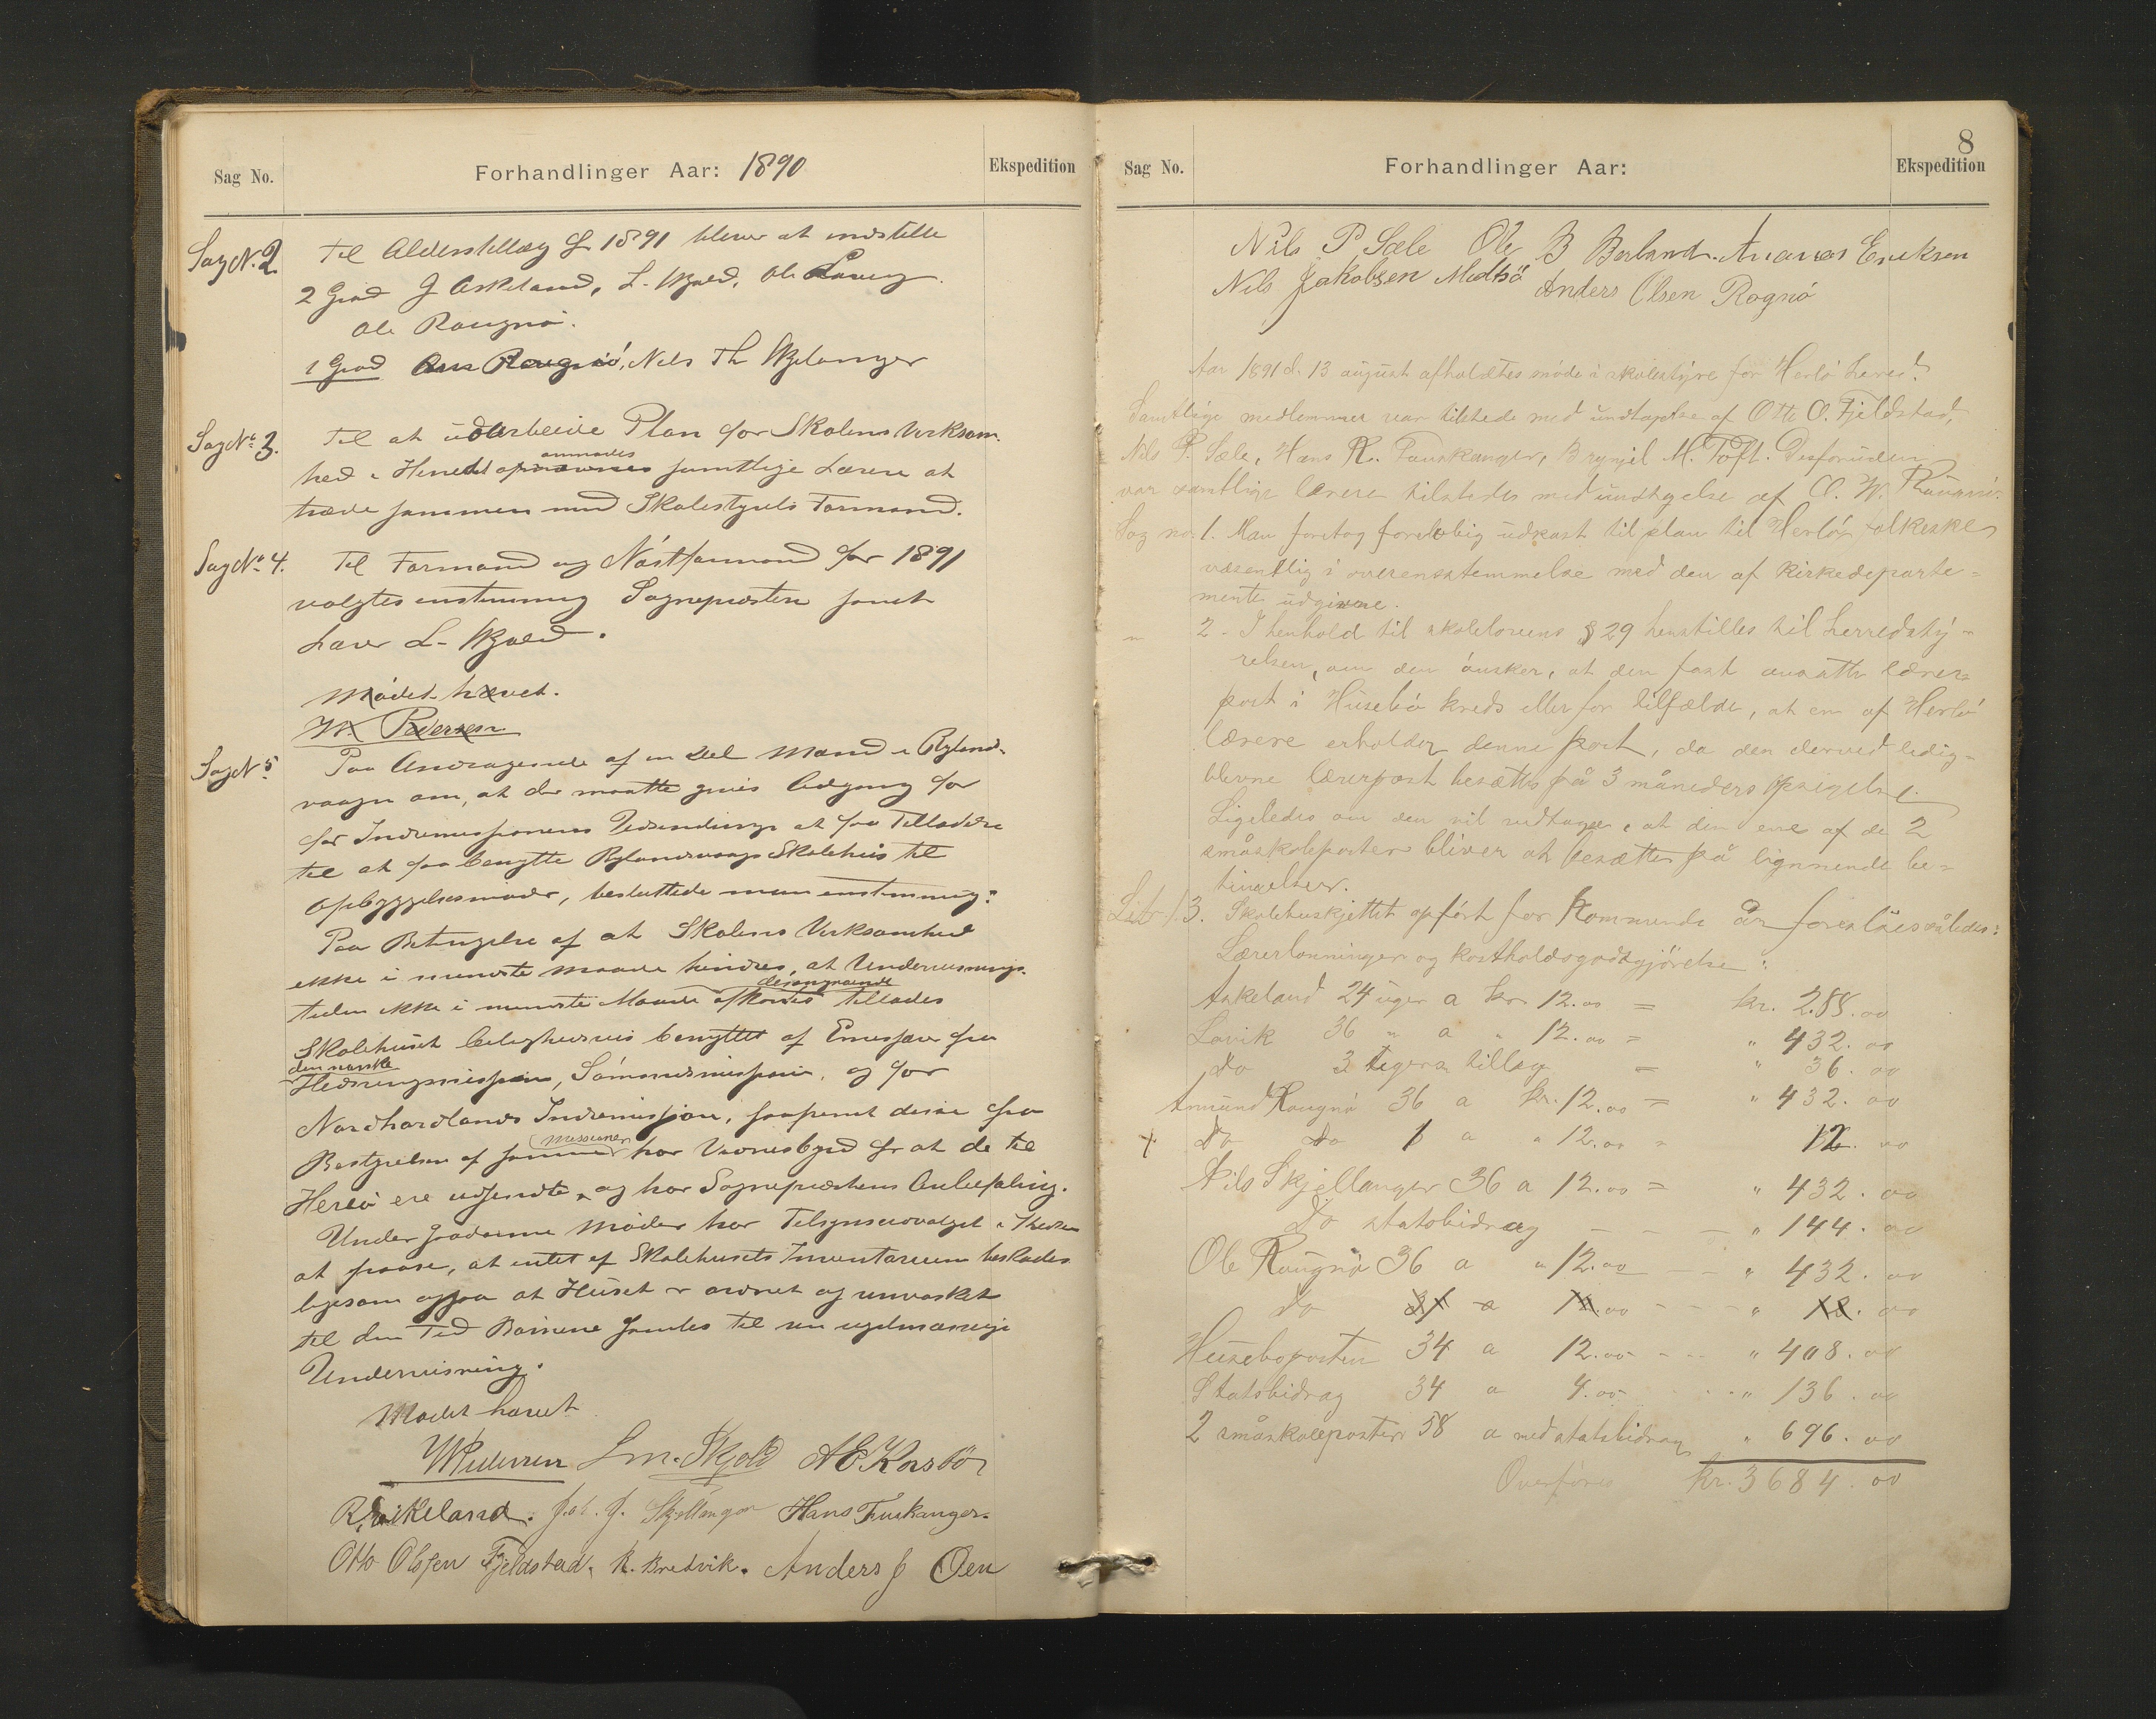 Sag No.
Forhandlinger Aar: 1890
Ekspedition
Sag N. 2.
Til Alderstillæg for 1891 bliver at indstille
2 Grad J Askeland, L. Skjold, Ole Lavig.
Ole Raugnø.
1 Grad Nils Th Skjelanger
Sag No 3.
Til at udarbeide Plan for Skolens Virksom-
hed i Herredet anmodes samtlige Lærere at
træde sammen med Skolestyrets Formand.
Sag No 4.
Til Formand og Næstformand for 1891
valgtes enstemmig Sognepresten samt
Lærer L. Skjold.
Mødet hævet.
W. Pedersen
Sag N 5
Paa Andragende af en Del Mænd i Rylands-
vaagen om, at der maatte gives Adgang for
for Indremissionens Udsendinge at faa Tilladelse
til at faa benytte Rylandsvaags Skolehus til
Opbyggelsesmøder, besluttede man enstemmig:
Paa Betingelse af at Skolens Virksomhed
ikke i mindste Maade hindres, at Undervisnings-
tiden ikke i mindste Maade afkortes tillades
Skolehuset leilighedsvis benyttet af Emissær fra
den norske
Hedningmission, Sømandsmission, og for
Nordhordlands Indremission, saafremt disse fra
Bestyrelsen af samme missioner har Vidnesbyrd for at de til
Herlø ere udsendte, og har Sogneprestens Anbefaling.
Under saadanne Møder har Tilsynsudvalget i Kredsen
at paase, at intet af Skolehusets Inventarium beskades
ligesom ogsaa at Huset er ordnet og renvasket
til den Tid Børnene samles til sin regelmæssige
Undervisning.
Mødet hævet
WPedersen L m. Skjold AEKorsbø
R. Eikeland. Joh. J. Skjellanger Hans Fuskanger.
Otto Olsen Fjeldstad. K. Bredvik. Anders J Øen
8
Sag No.
Forhandlinger Aar:
Ekspedition
Nils P Sæle Ole B Berland. Ananias Ericksen
Nils Jakobsen Meltsø Anders Olsen Rognø
Aar 1891 d. 13 august afholdtes møde i skolestyre for Herlø Herred.
Samtlige medlemmer var tilstede med undtagelse af Otto O. Fjeldstad,
Nils P. Sæle, Hans R. Fauskanger, Brynjel M. Toft. Desforuden
var samtlige lærere tilstedes med undtagelse af O. W. Raugnø.
Sag no. 1. Man foretog foreløbig udkast til plan til Herlø folkeskole
væsentlig i overensstemmelse med den af kirkedeparte-
mentet udgivne.
" 2. I henhold til skolelovens § 29 henstilles til herredsty-
relsen, om den ønsker, at den fast ansatte lærer-
post i Husebø kreds eller for tilfælde, at en af Herlø
lærere erholder denne post, da den derved ledig-
blevne lærerpost besættes på 3 måneders opsigelse.
Ligeledes om den vil vedtage, at den ene af de 2
småskoleposter bliver at besætte på lignende be-
tingelser.
Litr 1. 3. Skolebuskjettet opført for kommende år foreslåes således:
Lærerlønninger og kostholdsgodtgjørelse:
Askeland 24 uger a kr 12.00 = kr. 288.00
Lavik 36 " a " 12.00 = " 432.00
do 3 ugers tillæg = " 36.00
Amund Raugnø 36 a kr. 12.00 = " 432.00
+ do do 1 a " 12.00 = 12.00
Nils Skjellanger 36 a 12.00 = " 432.00
do statsbidrag - - - " 144.00
Ole Raugnø 36 a " 12.00 - - " 432.00
do a 12.00 - - - " 12.00
Huseboposten 34 a 12.00 - - " 408.00
Statsbidrag 34 a 4.00 - - " 136.00
2 småskoleposter 58 a med statsbidrag " 696.00
Overføres kr. 3684.00